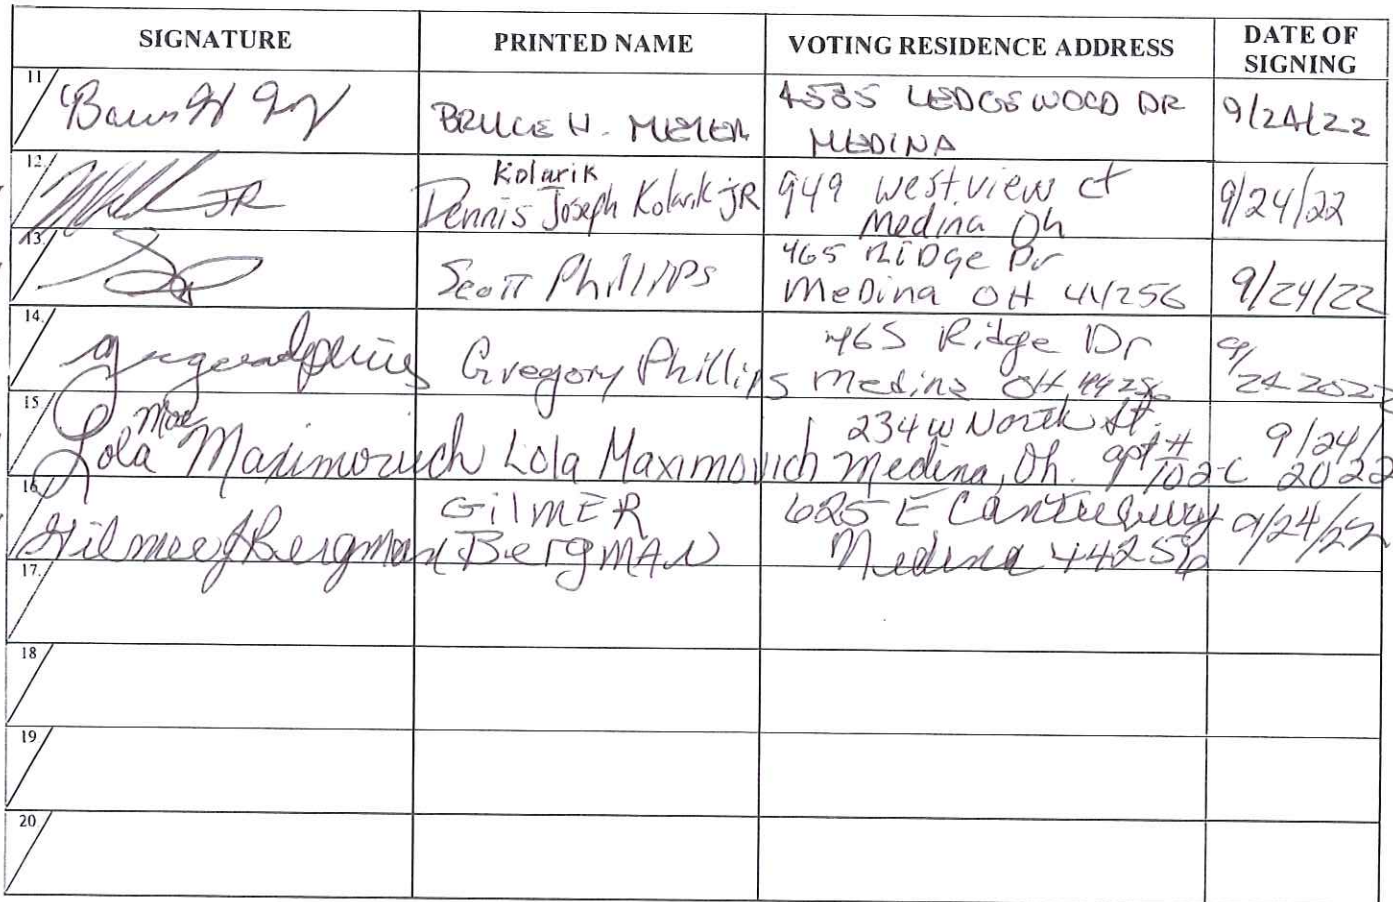 SIGNATURE PRINTED NAME VOTING RESIDENCE ADDRESS DATE OF SIGNING
11 BRUCE H. MEYER 4585 LEDGEWOOD DR MEDINA 9/24/22
12. JR Kolarik Dennis Joseph Kolarik JR 949 westview ct Medina Oh 9/24/22
13. Scott Phillips 465 Ridge Dr Medina OH 44256 9/24/22
14. Gregory Phillips 465 Ridge Dr Medina OH 44256 9/24 2022
15 Lola Mae Maximovich Lola Maximovich 234 W North St. apt # 102-C Medina, Oh. 9/24/2022
16. Gilmer Bergman GilmER BergmAN 625 E Canterbury Medina 44256 9/24/22
17.
18
19
20